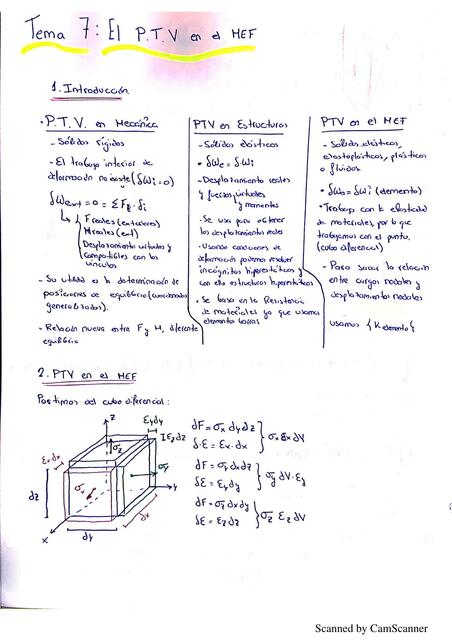 Tema 7: El P.T.V en el MEF
1. Introducción
• P.T.V. en Mecánica
- Sólidos rígidos
- El trabajo interior de
deformación no existe (δWi = 0)
δWext = 0 = ΣF · δi
F reales (exteriores)
M reales (ext)
Desplazamientos virtuales y
compatibles con los
vínculos
- Su utilidad es la determinación de
posiciones de equilibrio (coordenadas
generalizadas).
- Relación nueva entre F y M, diferente
equilibrio
PTV en Estructuras
- Sólidos elásticos
• δWe = δWi
- Desplazamientos reales
y fuerzas virtuales
y momentos
- Se usa para obtener
los desplazamientos reales
- Usando condiciones de
deformación podemos resolver
incógnitas hiperestáticas y con
ello estructuras hiperestáticas
- Se basa en la Resistencia
de materiales ya que usamos
elementos barras
PTV en el MEF
- Sólidos elásticos,
elastoplásticos, plásticos
o fluidos.
• δWe = δWi (elemento)
• Trabajo con la elasticidad
de materiales, por lo que
trabajamos con el punto.
(cubo diferencial)
- Para sacar la relación
entre cargas nodales y
desplazamientos nodales
usamos {K elemento}
2. PTV en el MEF
Partimos del cubo diferencial:
z
εy dy
εz dz
εx dx
σz
σy
σx
dz
y
dx
x
dy
dF = σx dy dz
δ·E = εx · dx
σx εx dV
dF = σy dx dz
δE = εy dy
σy dV · εy
dF = σz dx dy
δE = εz dz
σz εz dV
Scanned by CamScanner